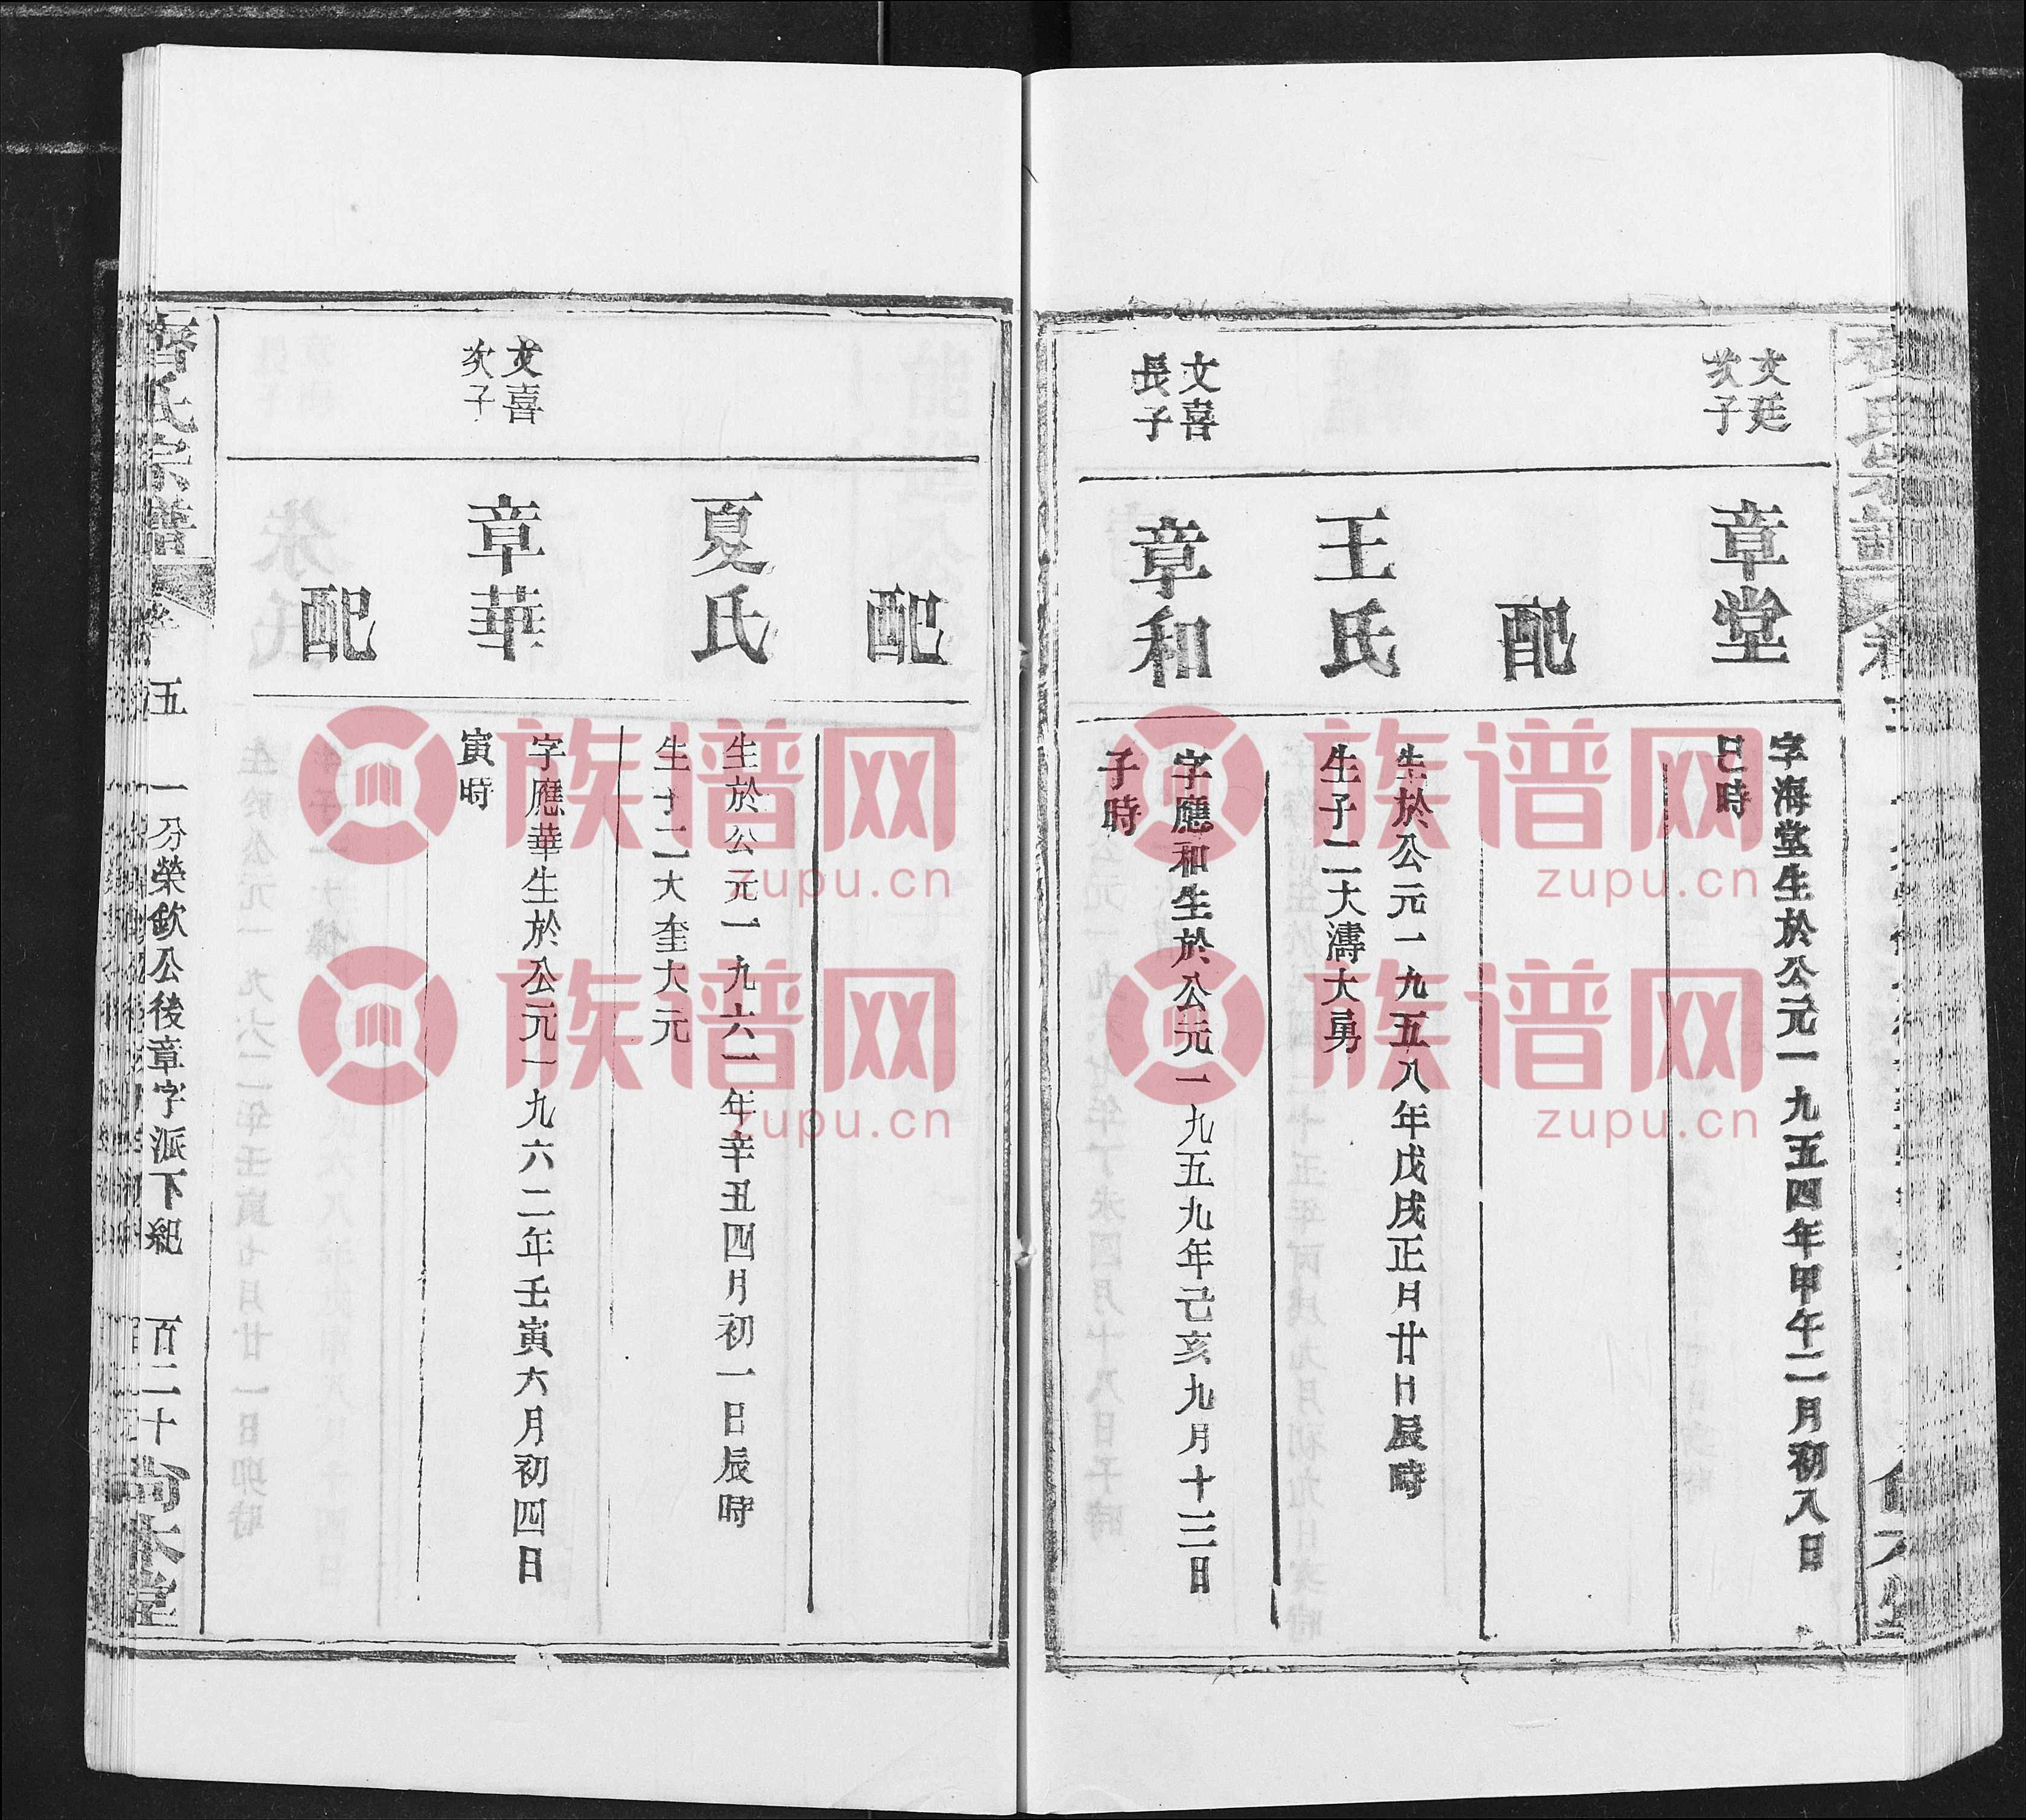 文廷
次子
章堂
字海堂生於公元一九五四年甲午二月初八日
巳時
配
王氏
生於公元一九五八年戊戌正月廿日辰時
生子二大濤大勇
文喜
長子
章和
字應和生於公元一九五九年己亥九月十三日
子時
配
夏氏
生於公元一九六一年辛丑四月初一日辰時
生子二大奎大元
文喜
次子
章華
字應華生於公元一九六二年壬寅六月初四日
寅時
配
齊氏宗譜
卷五
一分榮欽公後章字派下紀
百二十
尚本堂
族谱网
zupu.cn
族谱网
zupu.cn
族谱网
zupu.cn
族谱网
zupu.cn